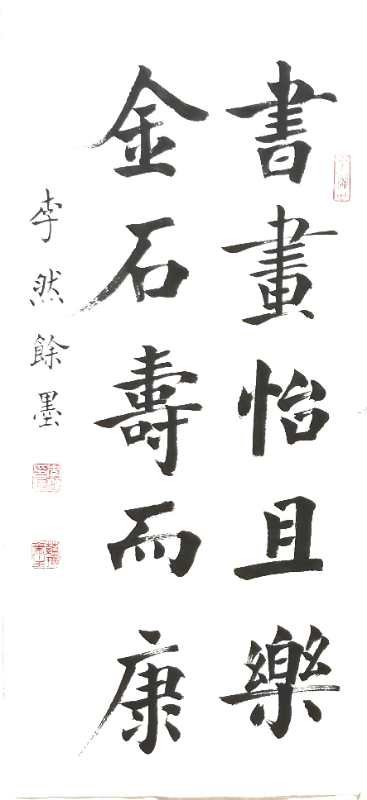 書畫怡且樂
金石壽而康
李然餘墨